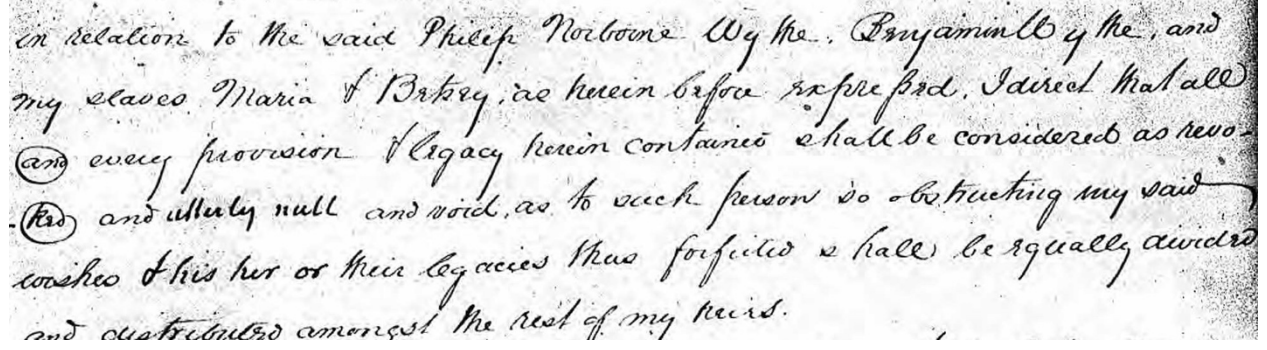 in relation to the said Philip Norborne Wythe, Benjamin Wythe, and
my slaves Maria & Betsey, as herein before expressed, I direct that all
and every provision & legacy herein contained shall be considered as revo-
-ked and utterly null and void, as to such person so obstructing my said
wishes & his her or their legacies thus forfeited shall be equally divided
and distributed amongst the rest of my heirs.